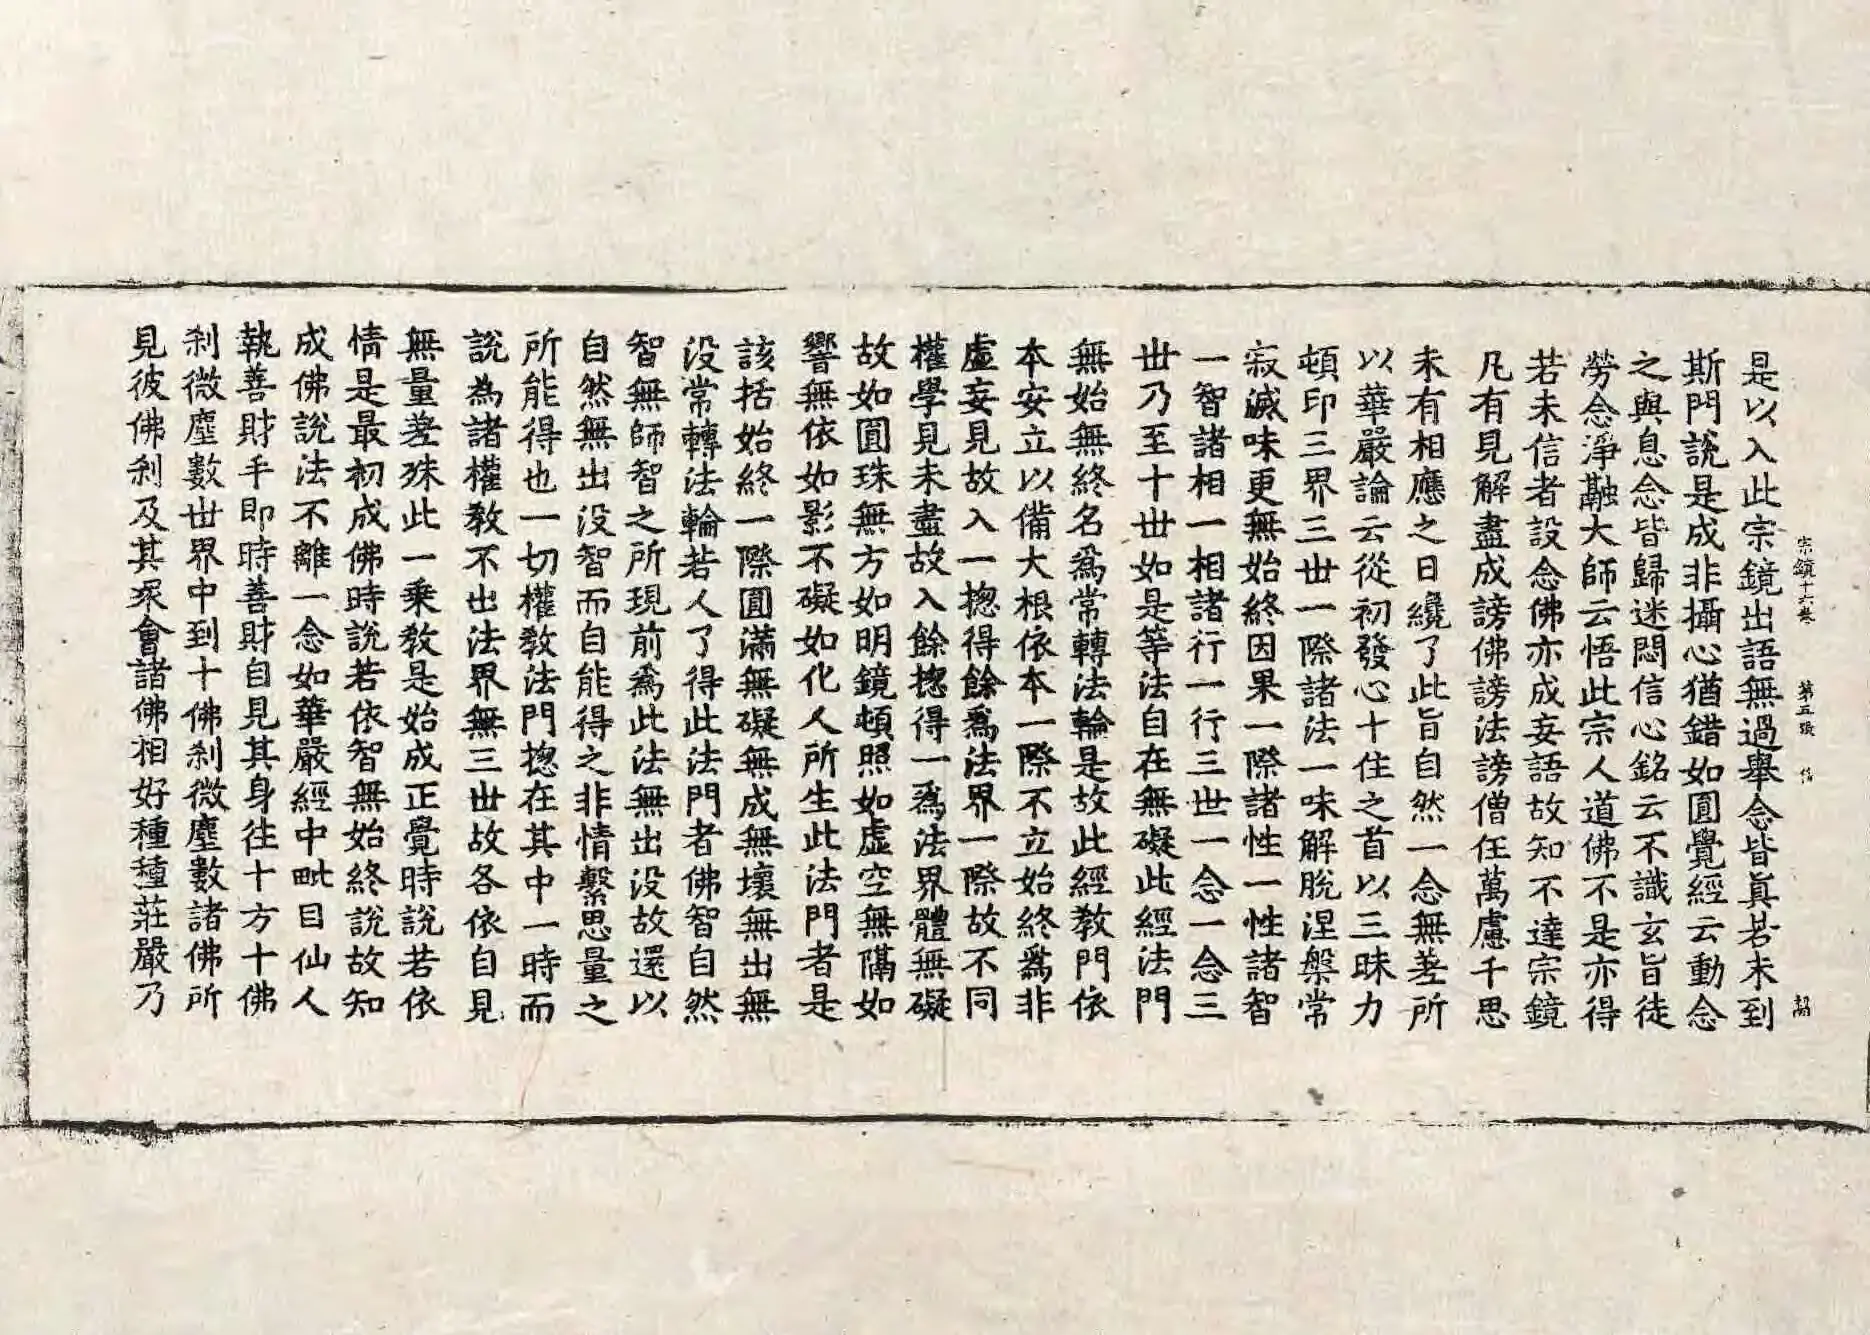 宗鏡十六卷 第五張
是以入此宗鏡出語無過舉念皆眞若未到
斯門說是成非攝心猶錯如圓覺經云動念
之與息念皆歸迷悶信心銘云不識玄旨徒
勞念淨融大師云悟此宗人道佛不是亦得
若未信者設念佛亦成妄語故知不達宗鏡
凡有見解盡成謗佛謗法謗僧任萬慮千思
未有相應之日纔了此旨自然一念無差所
以華嚴論云從初發心十住之首以三昧力
頓印三界三世一際諸法一味解脫涅槃常
寂滅味更無始終因果一際諸性一性諸智
一智諸相一相諸行一行三世一念一念三
世乃至十世如是等法自在無礙此經法門
無始無終名爲常轉法輪是故此經教門依
本安立以備大根依本一際不立始終爲非
虛妄見故入一揔得餘爲法界一際故不同
權學見未盡故入餘揔得一爲法界體無礙
故如圓珠無方如明鏡頓照如虛空無隔如
響無依如影不礙如化人所生此法門者是
該括始終一際圓滿無礙無成無壞無出無
没常轉法輪若人了得此法門者佛智自然
智無師智之所現前爲此法無出没故還以
自然無出没智而自能得之非情繫思量之
所能得也一切權教法門揔在其中一時而
說為諸權教不出法界無三世故各依自見
無量差殊此一乘教是始成正覺時說若依
情是最初成佛時說若依智無始終說故知
成佛說法不離一念如華嚴經中毗目仙人
執善財手即時善財自見其身往十方十佛
刹微塵數世界中到十佛刹微塵數諸佛所
見彼佛刹及其衆會諸佛相好種種莊嚴乃